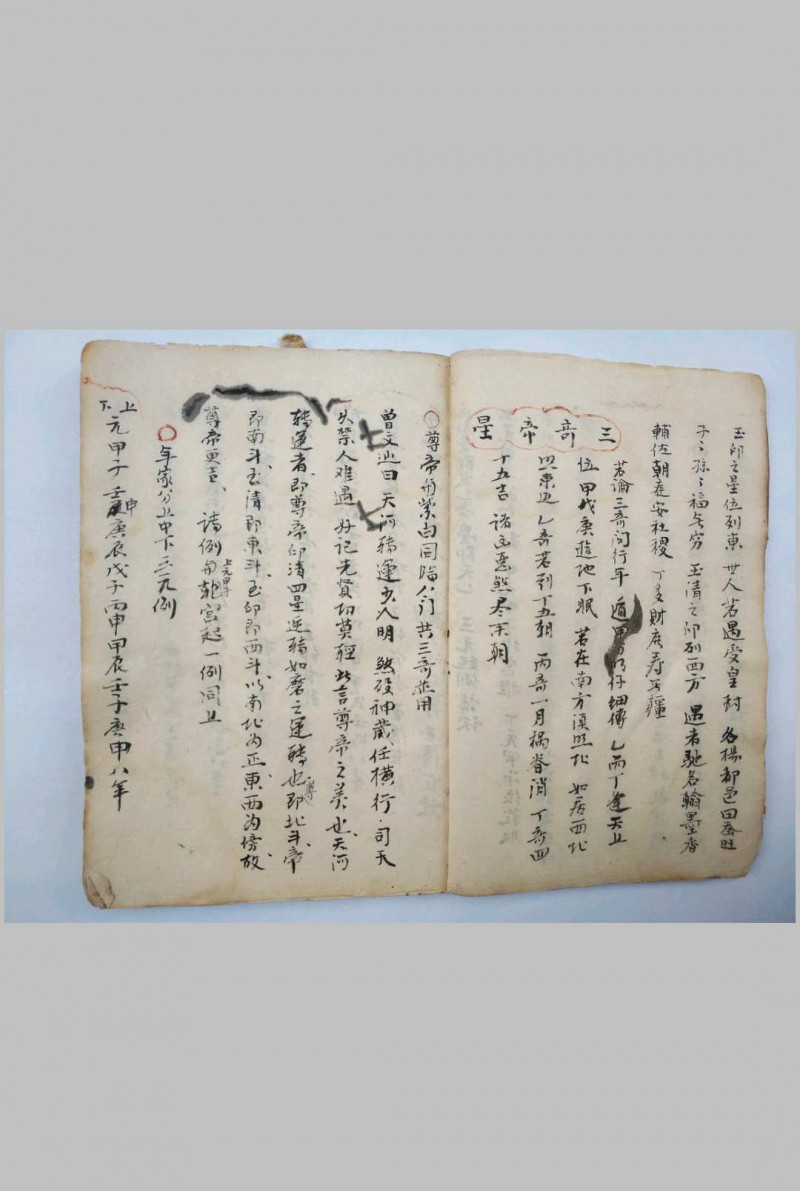 玉印之星位列東 世人若遇受皇封 各揚都邑田蚕旺
子子孫孫福无窮 玉清之印列西方 遇者馳名翰墨香
輔佐朝庭安社稷 丁多財庶寿無疆
三奇帝星
若論三奇问行年 遁甲 仔細傳 乙丙丁逢天上
位 甲戊庚臨地下眠 若在南方須照北 如居西北
照東边 乙奇若到丁五朝 丙奇一月祸眷消 丁奇四
十五吉 諸凶惡煞尽来朝
〇尊帝旬紫白同臨八门共三奇並用
曾文辿曰 天河轉運少人明 煞殁神藏任横行 司天
禁人难遇 好记先賢切莫輕 此言尊帝之美也 天河
轉運者即尊帝印清四星逆轉如磨之運轉也 尊即北斗 帝
即南斗 玉清即東斗 玉印即西斗 以南北为正 東西为傍 故
尊帝更吉 诸例旬乾宫起一例同上
上元甲子
〇年家分上中下三元例
上下元甲子壬申庚辰戊子丙申甲辰壬子庚申八年